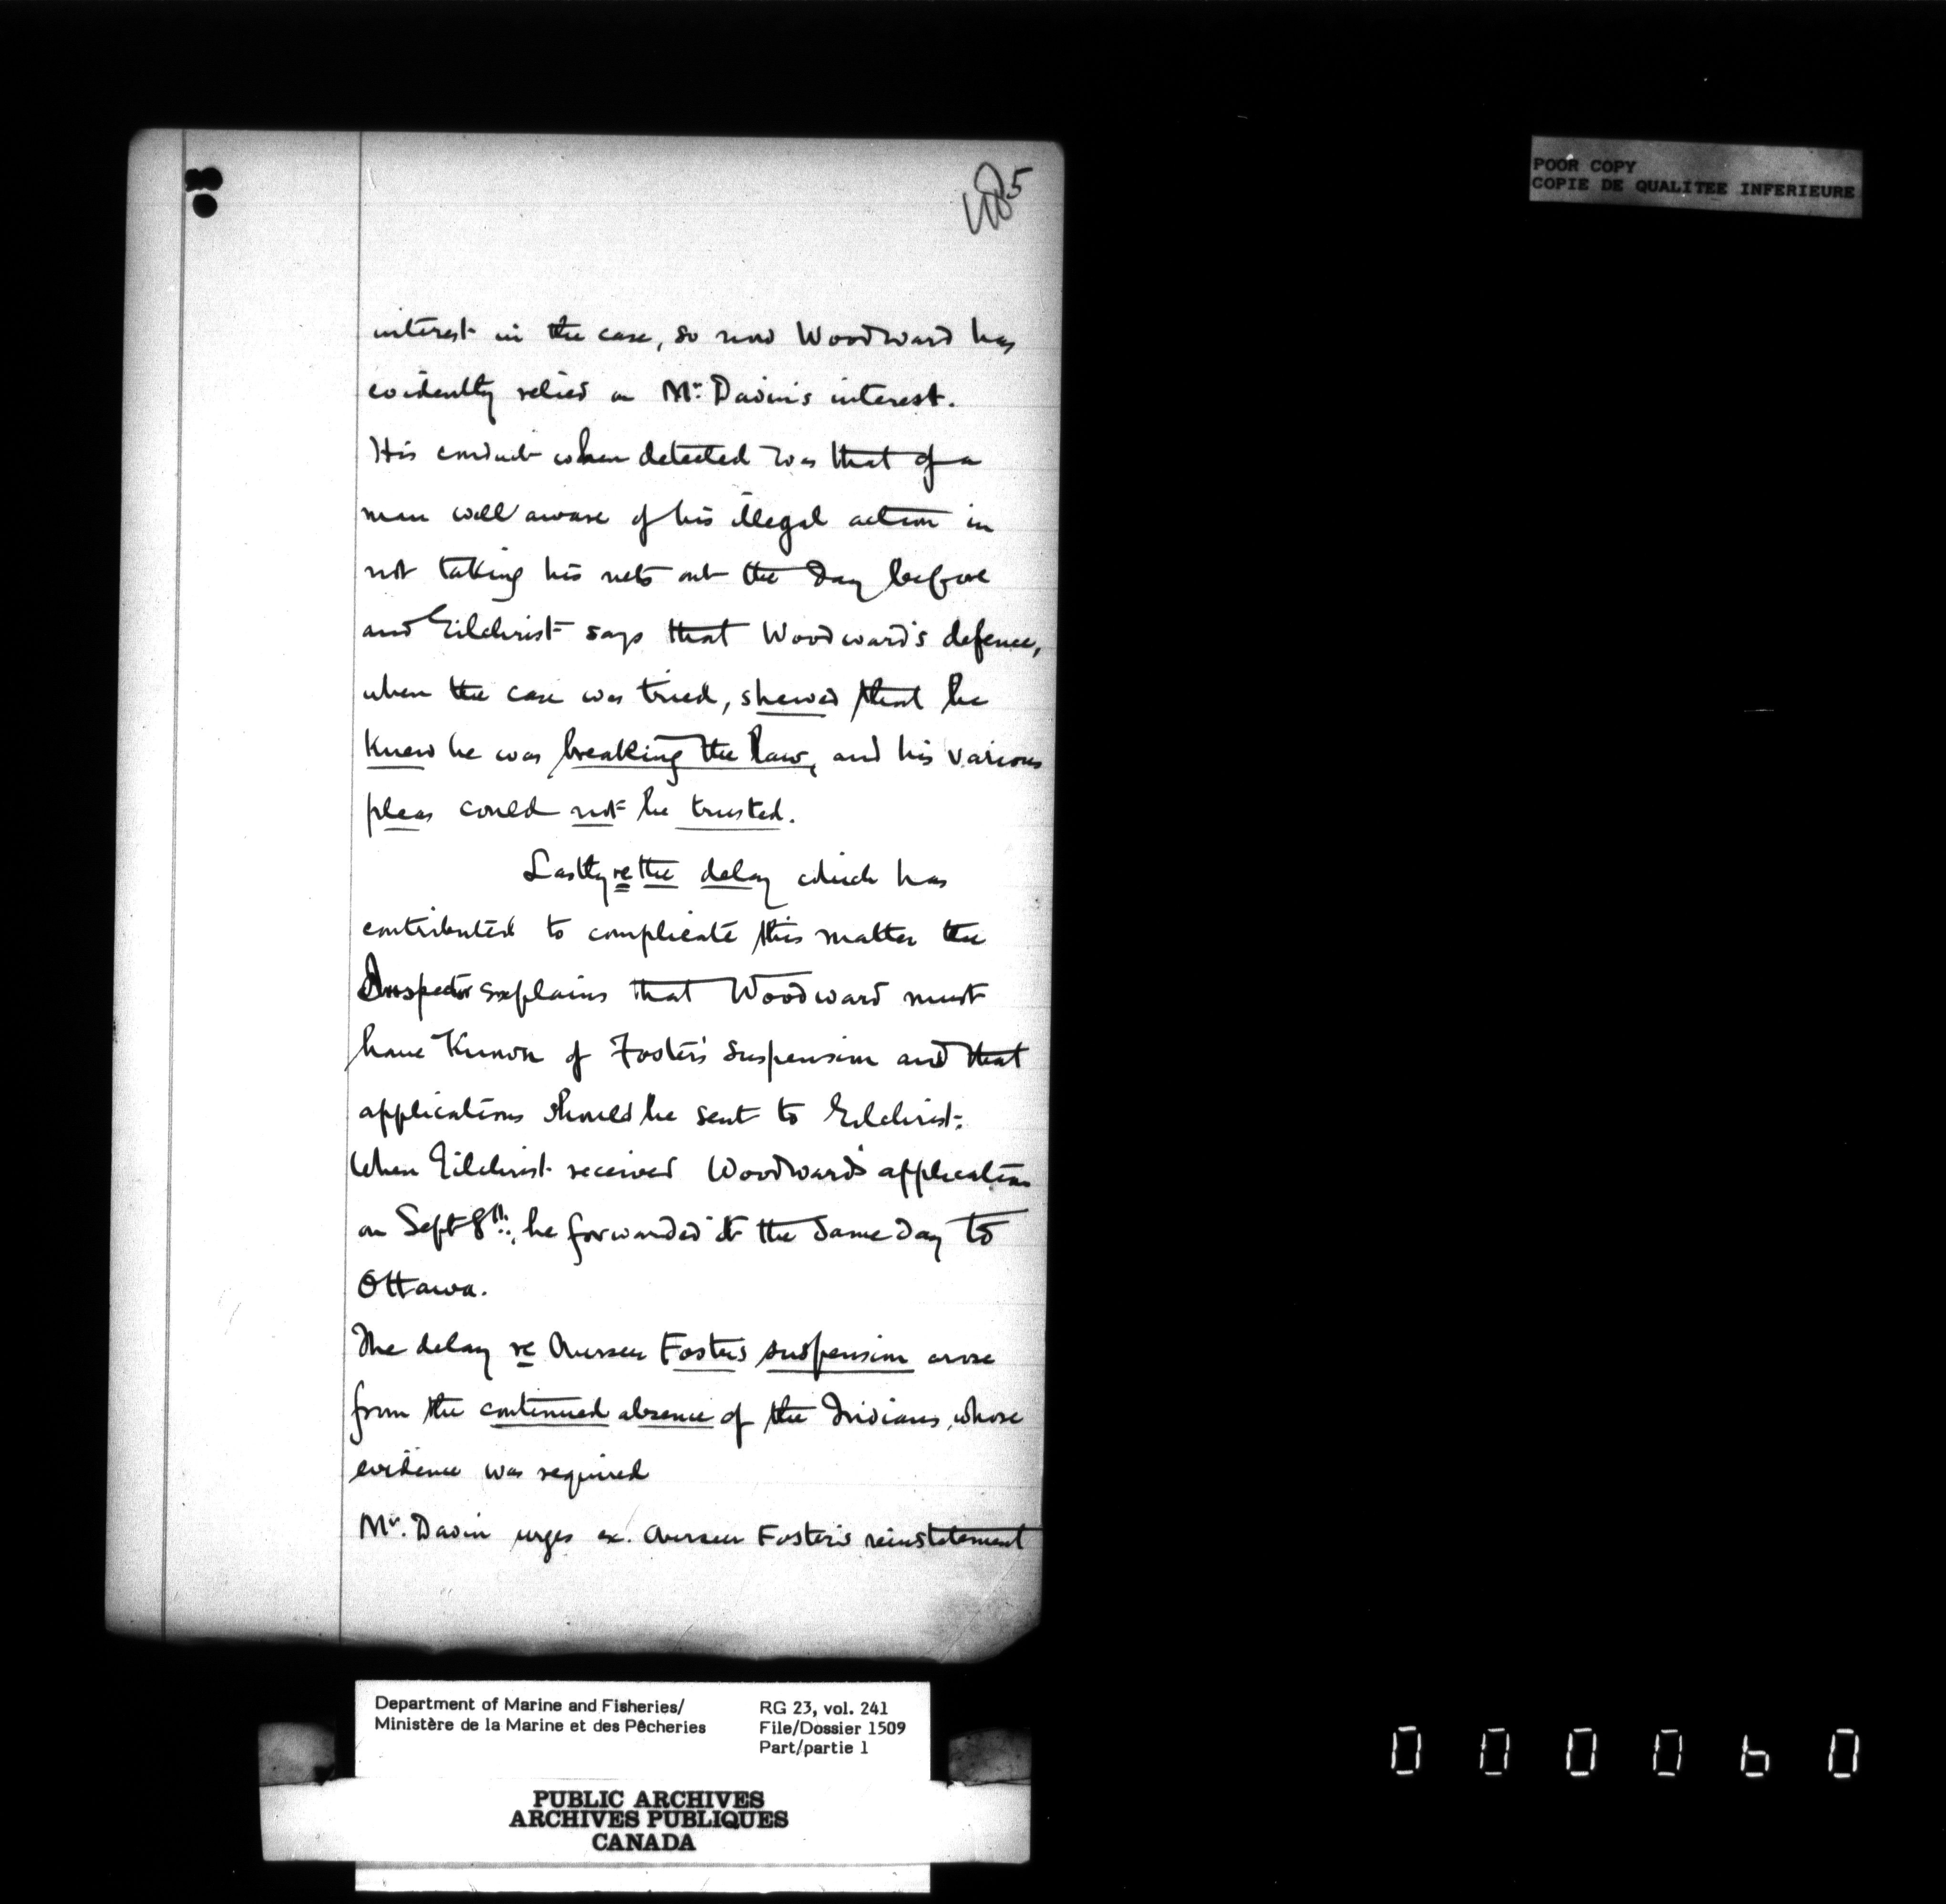 5
POOR COPY
COPIE DE QUALITEE INFERIEURE
interest in the case, so now Woodward has
evidently relied on Mr. Davin's interest.
His conduct when detected was that of a
man well aware of his illegal action in
not taking his nets out the day before
and Gilchrist says that Woodward's defence,
when the case was tried, shewed that he
knew he was breaking the law, and his various
pleas could not be trusted.
Lastly re the delay which has
contributed to complicate this matter the
Inspector explains that Woodward must
have known of Foster's suspension and that
applications should be sent to Gilchrist.
When Gilchrist received Woodward's application
on Sept 8th, he forwarded it the same day to
Ottawa.
The delay re Overseer Foster's suspension arose
from the continued absence of the Indians, whose
evidence was required
Mr. Davin urges ex. Overseer Foster's reinstatement
Department of Marine and Fisheries/
Ministère de la Marine et des Pêcheries
RG 23, vol. 241
File/Dossier 1509
Part/partie 1
PUBLIC ARCHIVES
ARCHIVES PUBLIQUES
CANADA
000060